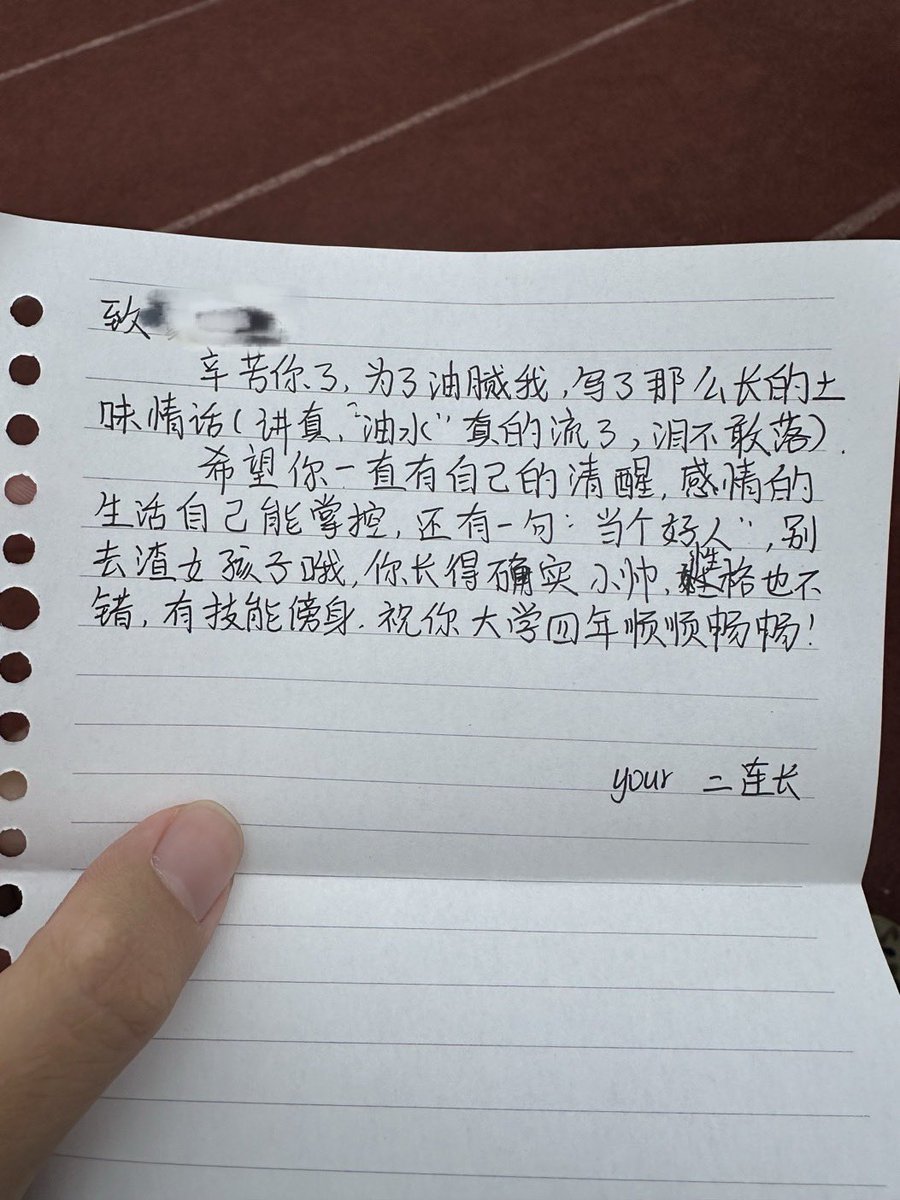 致
辛苦你了，为了油腻我，写了那么长的土
味情话（讲真，“油水”真的流了，泪不敢落）.
希望你一直有自己的清醒，感情的
生活自己能掌控，还有一句：“当个好人”，别
去渣女孩子哦，你长得确实小帅，性格也不
错，有技能傍身．祝你大学四年顺顺畅畅！
your 二连长